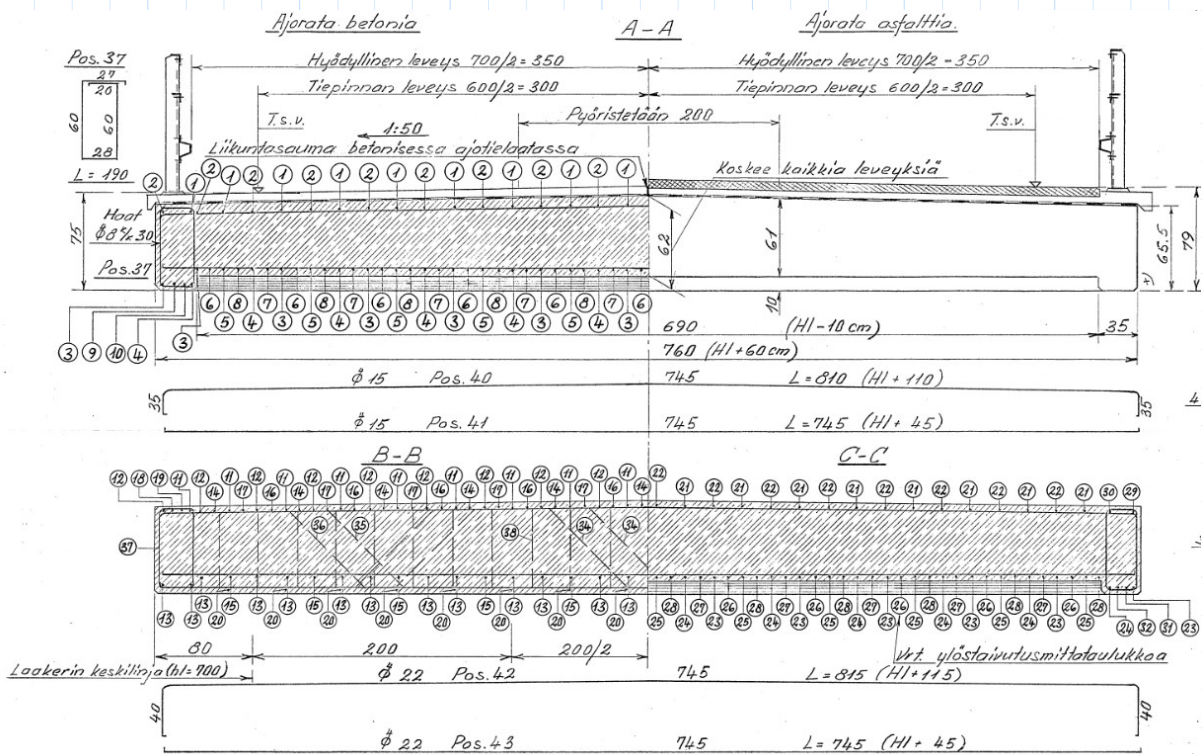 Ajorata betonia
A-A
Ajorata asfalttia.
Pos. 37
27
20
60
60
28
L = 190
Hyödyllinen leveys 700/2 = 350
Hyödyllinen leveys 700/2 = 350
Tiepinnan leveys 600/2 = 300
Tiepinnan leveys 600/2 = 300
Pyöristetään 200
T.s.v.
T.s.v.
1:50
Liikuntasauma betonisessa ajotielaatassa
Koskee kaikkia leveyksiä
2 1 2 1 2 1 2 1 2 1 2 1 2 1 2 1 2 1
75
Haat
Pos.37
62
61
10
65.5
79
6 8 7 6 8 7 6 8 7 6 8 7 6 8 7 6
5 4 3 5 4 3 5 4 3 5 4 3 5 4 3
3 9 10 4 3
690 (Hl-10 cm)
35
760 (Hl+60cm)
ϕ 15 Pos. 40 745 L=810 (Hl+110)
35
35
4
ϕ 15 Pos. 41 745 L=745 (Hl+45)
B-B
C-C
12 18 19 11 12 11 12 11 12 11 12 11 12 11 12 11 12 11 22
14 17 16 14 17 16 14 17 16 14 17 16 14 17 16 14
21 22 21 22 21 22 21 22 21 22 21 22 21 22 21 30 29
37
36 35 38 34 34
13 15 13 13 15 13 13 15 13 13 15 13 13 15 13 13
13 20 20 20 20 20 20 20 20 20 20
28 27 26 28 27 26 28 27 26 28 27 26 28 27 26 28
25 24 23 25 24 23 25 24 23 25 24 23 25 24 23 25
24 32 31 23
80
200
200/2
Vrt. ylöstaivutusmittataulukkoa
Laakerin keskilinja (hl=700)
ϕ 22 Pos. 42 745 L=815 (Hl+115)
40
40
ϕ 22 Pos. 43 745 L=745 (Hl+45)